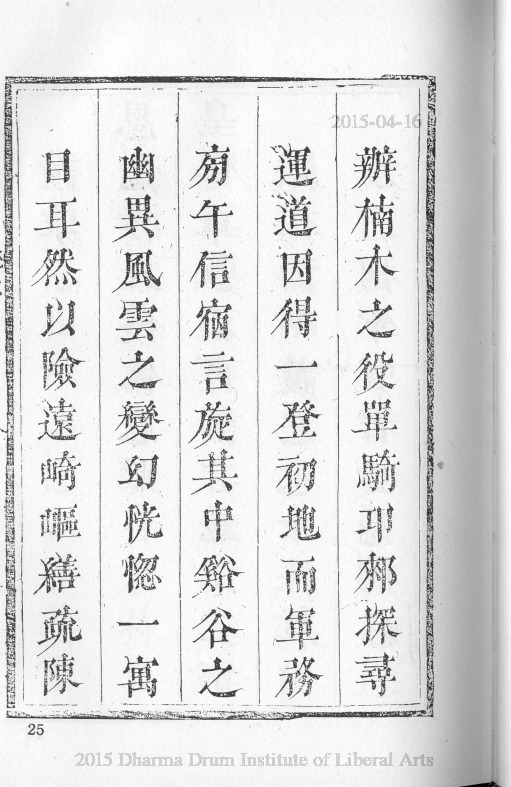 2015-04-16
辦楠木之役單騎卭郲探尋
運道因得一登初地而軍務
旁午信宿言旋其中谿谷之
幽異風雲之變幻恍惚一寓
目耳然以險遠崎嶇繕疏陳
25
2015 Dharma Drum Institute of Liberal Arts